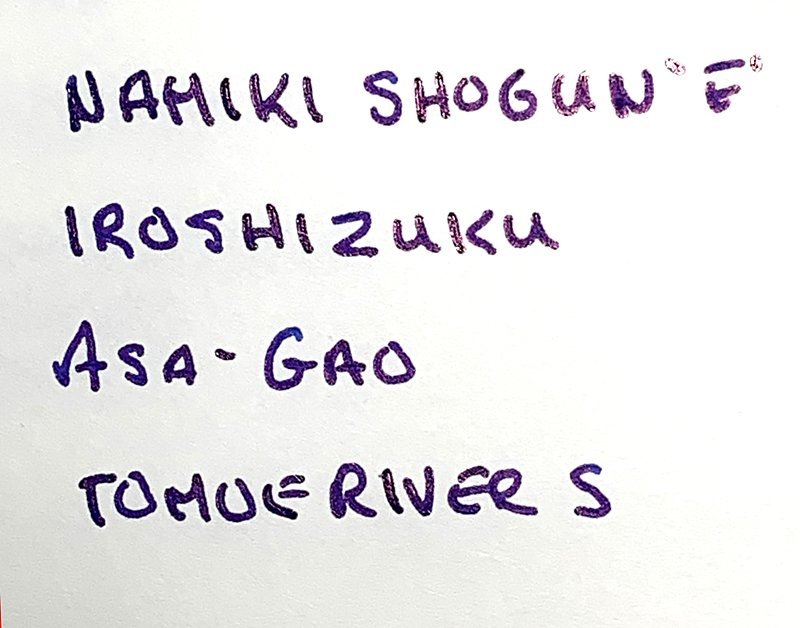 NAMIKI SHOGUN "F"
IROSHIZUKU
ASA-GAO
TOMOE RIVER S